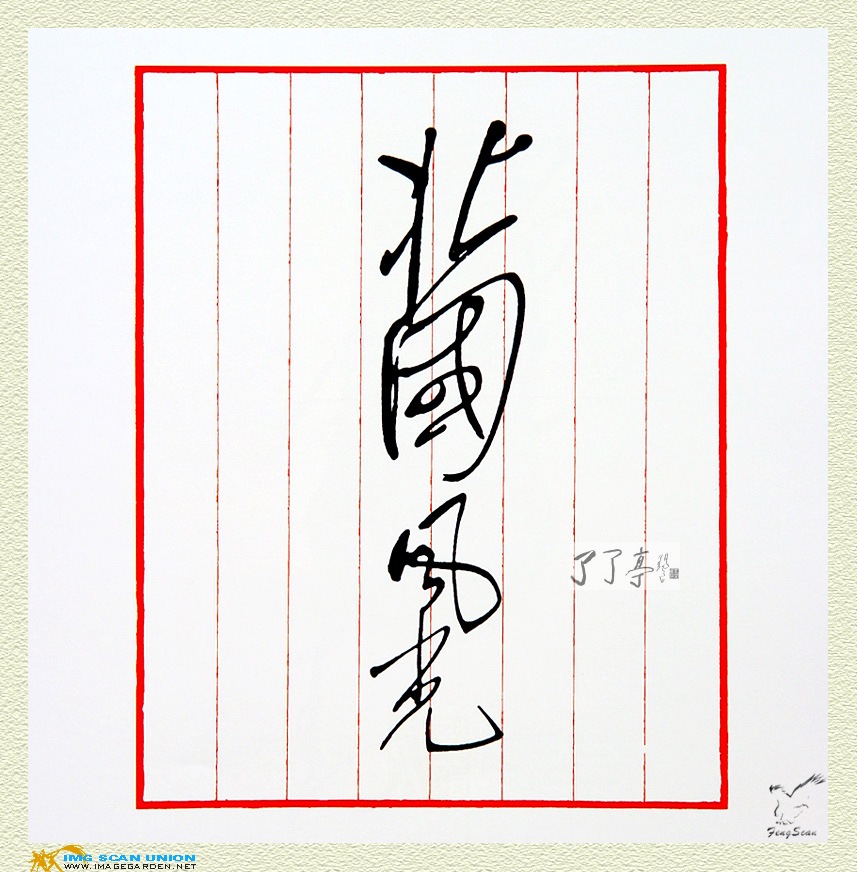 北國風光
了了亭
FengScan
IMG SCAN UNION
WWW.IMAGEGARDEN.NET